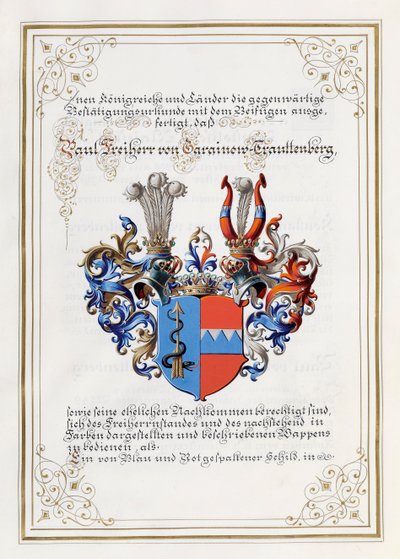 nen Königreiche und Länder die gegenwärtige
Bestätigungsurkunde mit dem Beifügen ausge,
fertigt, daß
Paul Freiherr von Garginow-Trauttenberg,
sowie seine ehelichen Nachkommen berechtigt sind,
sich des Freiherrnstandes und des nachstehend in
Farben dargestellten und beschriebenen Wappens
zu bedienen als:
Ein von Blau und Rot gespaltener Schild, in